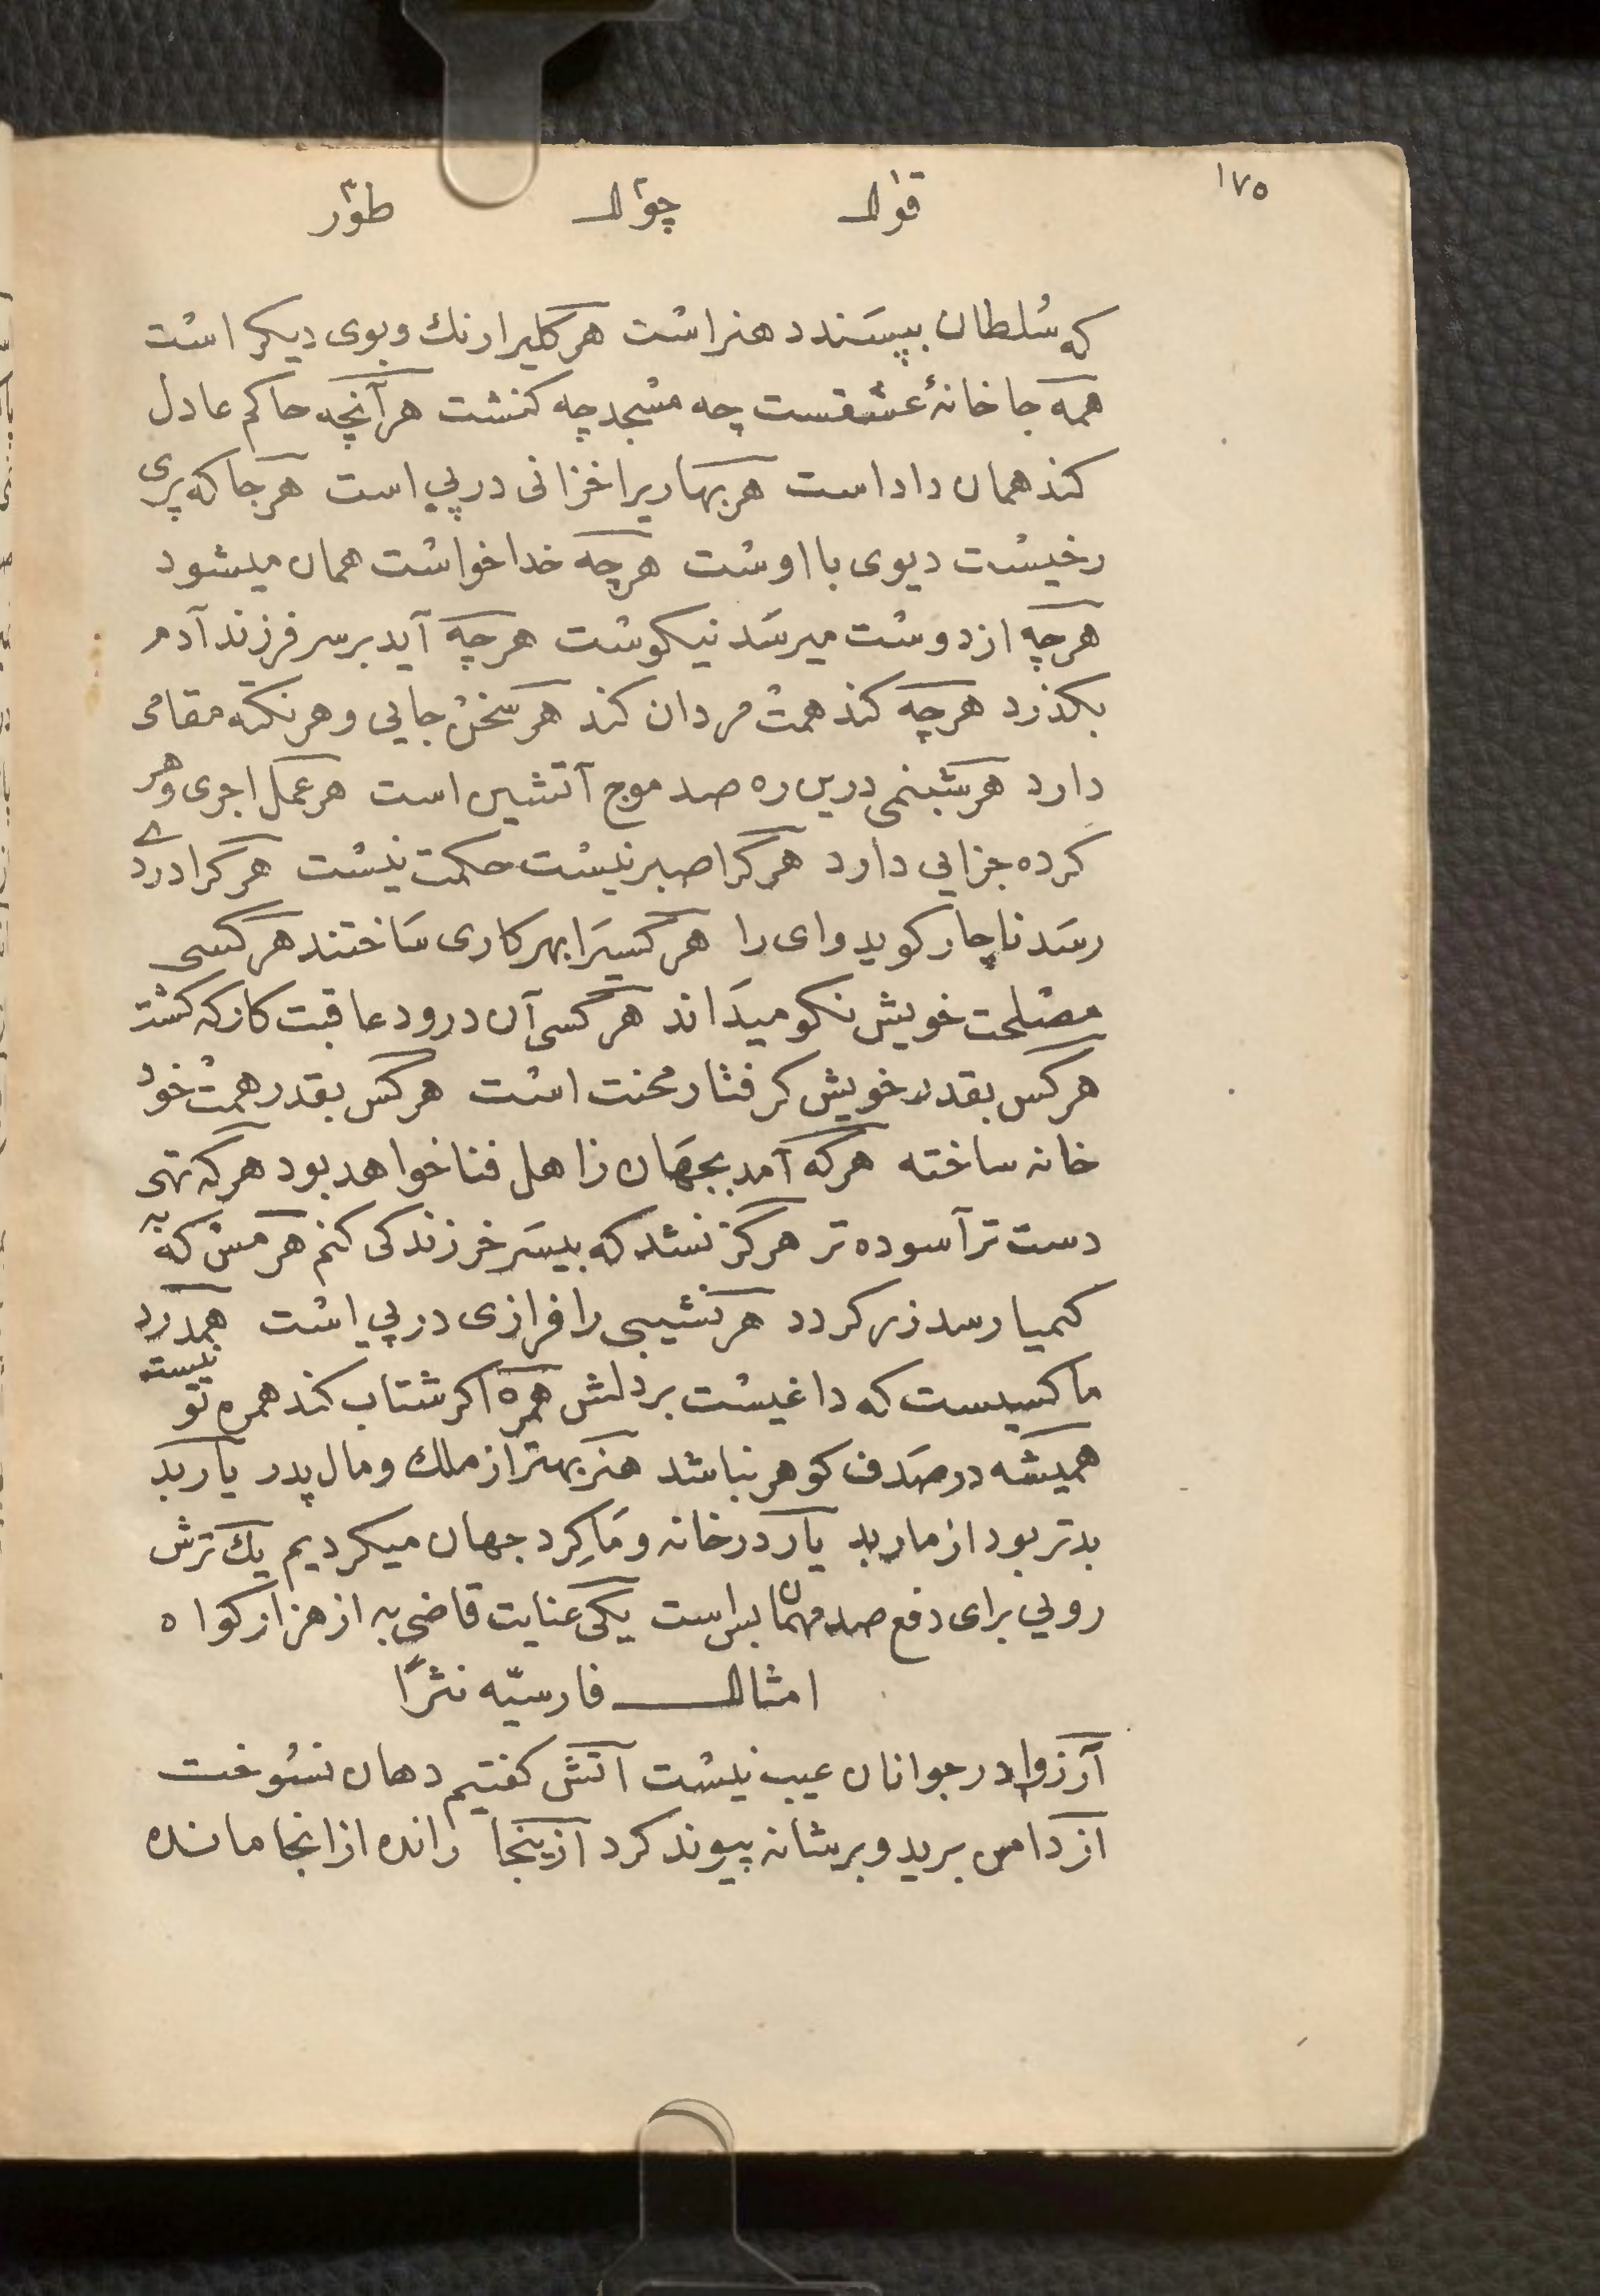 ١٧٥
قوال چوال طور
که سلطان بپسندد هنر است هر کلیرا رنك وبوی دیکر است
همه جا خانهٔ عشقست چه مسجد چه کنشت هر آنچه حاکم عادل
کند همان داد است هر بهاریرا خزانی در پی است هر جا که پری
رخیست دیوی با اوست هر چه خدا خواست همان میشود
هر چه از دوست میرسد نیکوست هر چه آید بر سر فرزند آدم
بکذرد هر چه کند همت مردان کند هر سخن جایی وهر نکته مقامی
دارد هر شبنمی درین ره صد موج آتشین است هر عمل اجری وهر
کرده جزایی دارد هر کرا صبر نیست حکمت نیست هر کرا دردے
رسد ناچار کوید وای را هر کسیرا بهر کاری ساختند هر کسی
مصلحت خویش نکو میداند هر کسی آن درود عاقبت کار که کشت
هر کس بقدر خویش کرفتار محنت است هر کس بقدر همت خود
خانه ساخته هر که آمد بجهان ز اهل فنا خواهد بود هر که تهی
دست تر آسوده تر هرکز نشد که بیسر خر زندکی کنم هر مس که به
کمیا رسد زر کردد هر نشیبی را فرازی در پی است همدرد
ما کسیست که داغیست بر دلش همره اکر شتاب کند همره تو نیست
همیشه در صدف کوهر نباشد هنر بهتر از ملك ومال پدر یار بد
بدتر بود از مار بد یار در خانه وما کرد جهان میکردیم یك ترش
رویی برای دفع صد مهمان بس است یکی عنایت قاضی به از هزار کواه
امثال فارسیّه نثرًا
آرزو در جوانان عیب نیست آتش کفتیم دهان نسوخت
از دامن برید وبر شانه پیوند کرد از ینجا رانده از انجا مانده